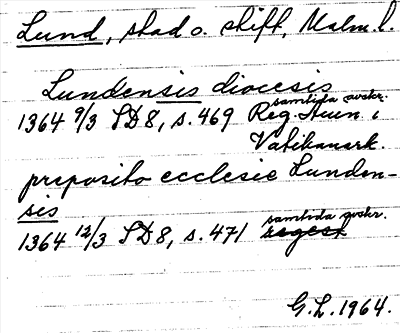 Lund, stad o. stift, Malm. l.
Lundensis diocesis
samtida avskr.
1364 9/3 SD 8, s. 469 Reg. Aven. i
Vatikanark.
preposito ecclesie Lunden-
sis
samtida avskr.
1364 12/3 SD 8, s. 471 regest
G. L. 1964.